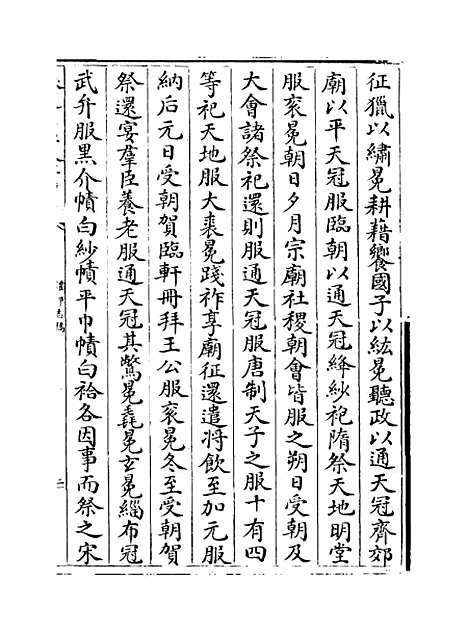 征獵以繡冕耕藉饗國子以紘冕聽政以通天冠齊郊
廟以平天冠服臨朝以通天冠絳紗袍隋祭天地明堂
服衮冕朝日夕月宗廟社稷朝會皆服之朔日受朝及
大會諸祭祀還則服通天冠服唐制天子之服十有四
等祀天地服大裘冕踐祚享廟征還遣將飲至加元服
納后元日受朝賀臨軒冊拜王公服衮冕冬至受朝賀
祭還宴羣臣養老服通天冠其鷩冕毳冕玄冕緇布冠
武弁服黑介幘白紗幘平巾幘白袷各因事而祭之宋
二